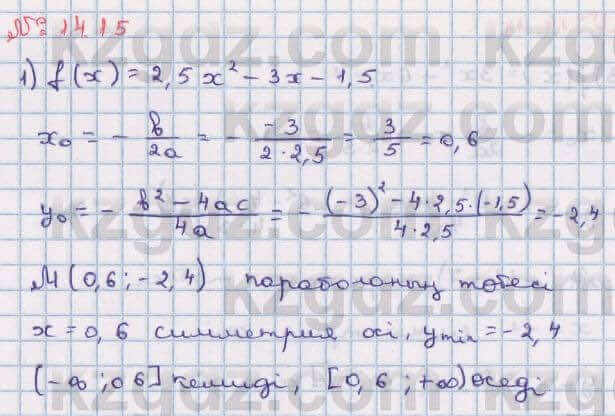 № 14.15
1) f(x) = 2,5x² - 3x - 1,5
x₀ = - b/2a = - -3/2·2,5 = 3/5 = 0,6
y₀ = - b²-4ac/4a = - (-3)²-4·2,5·(-1,5)/4·2,5 = -2,4
M(0,6; -2,4) параболаның төбесі
x = 0,6 симметрия осі, ymin = -2,4
(-∞; 0,6] кемиді, [0,6; +∞) өседі
kzgdz.com